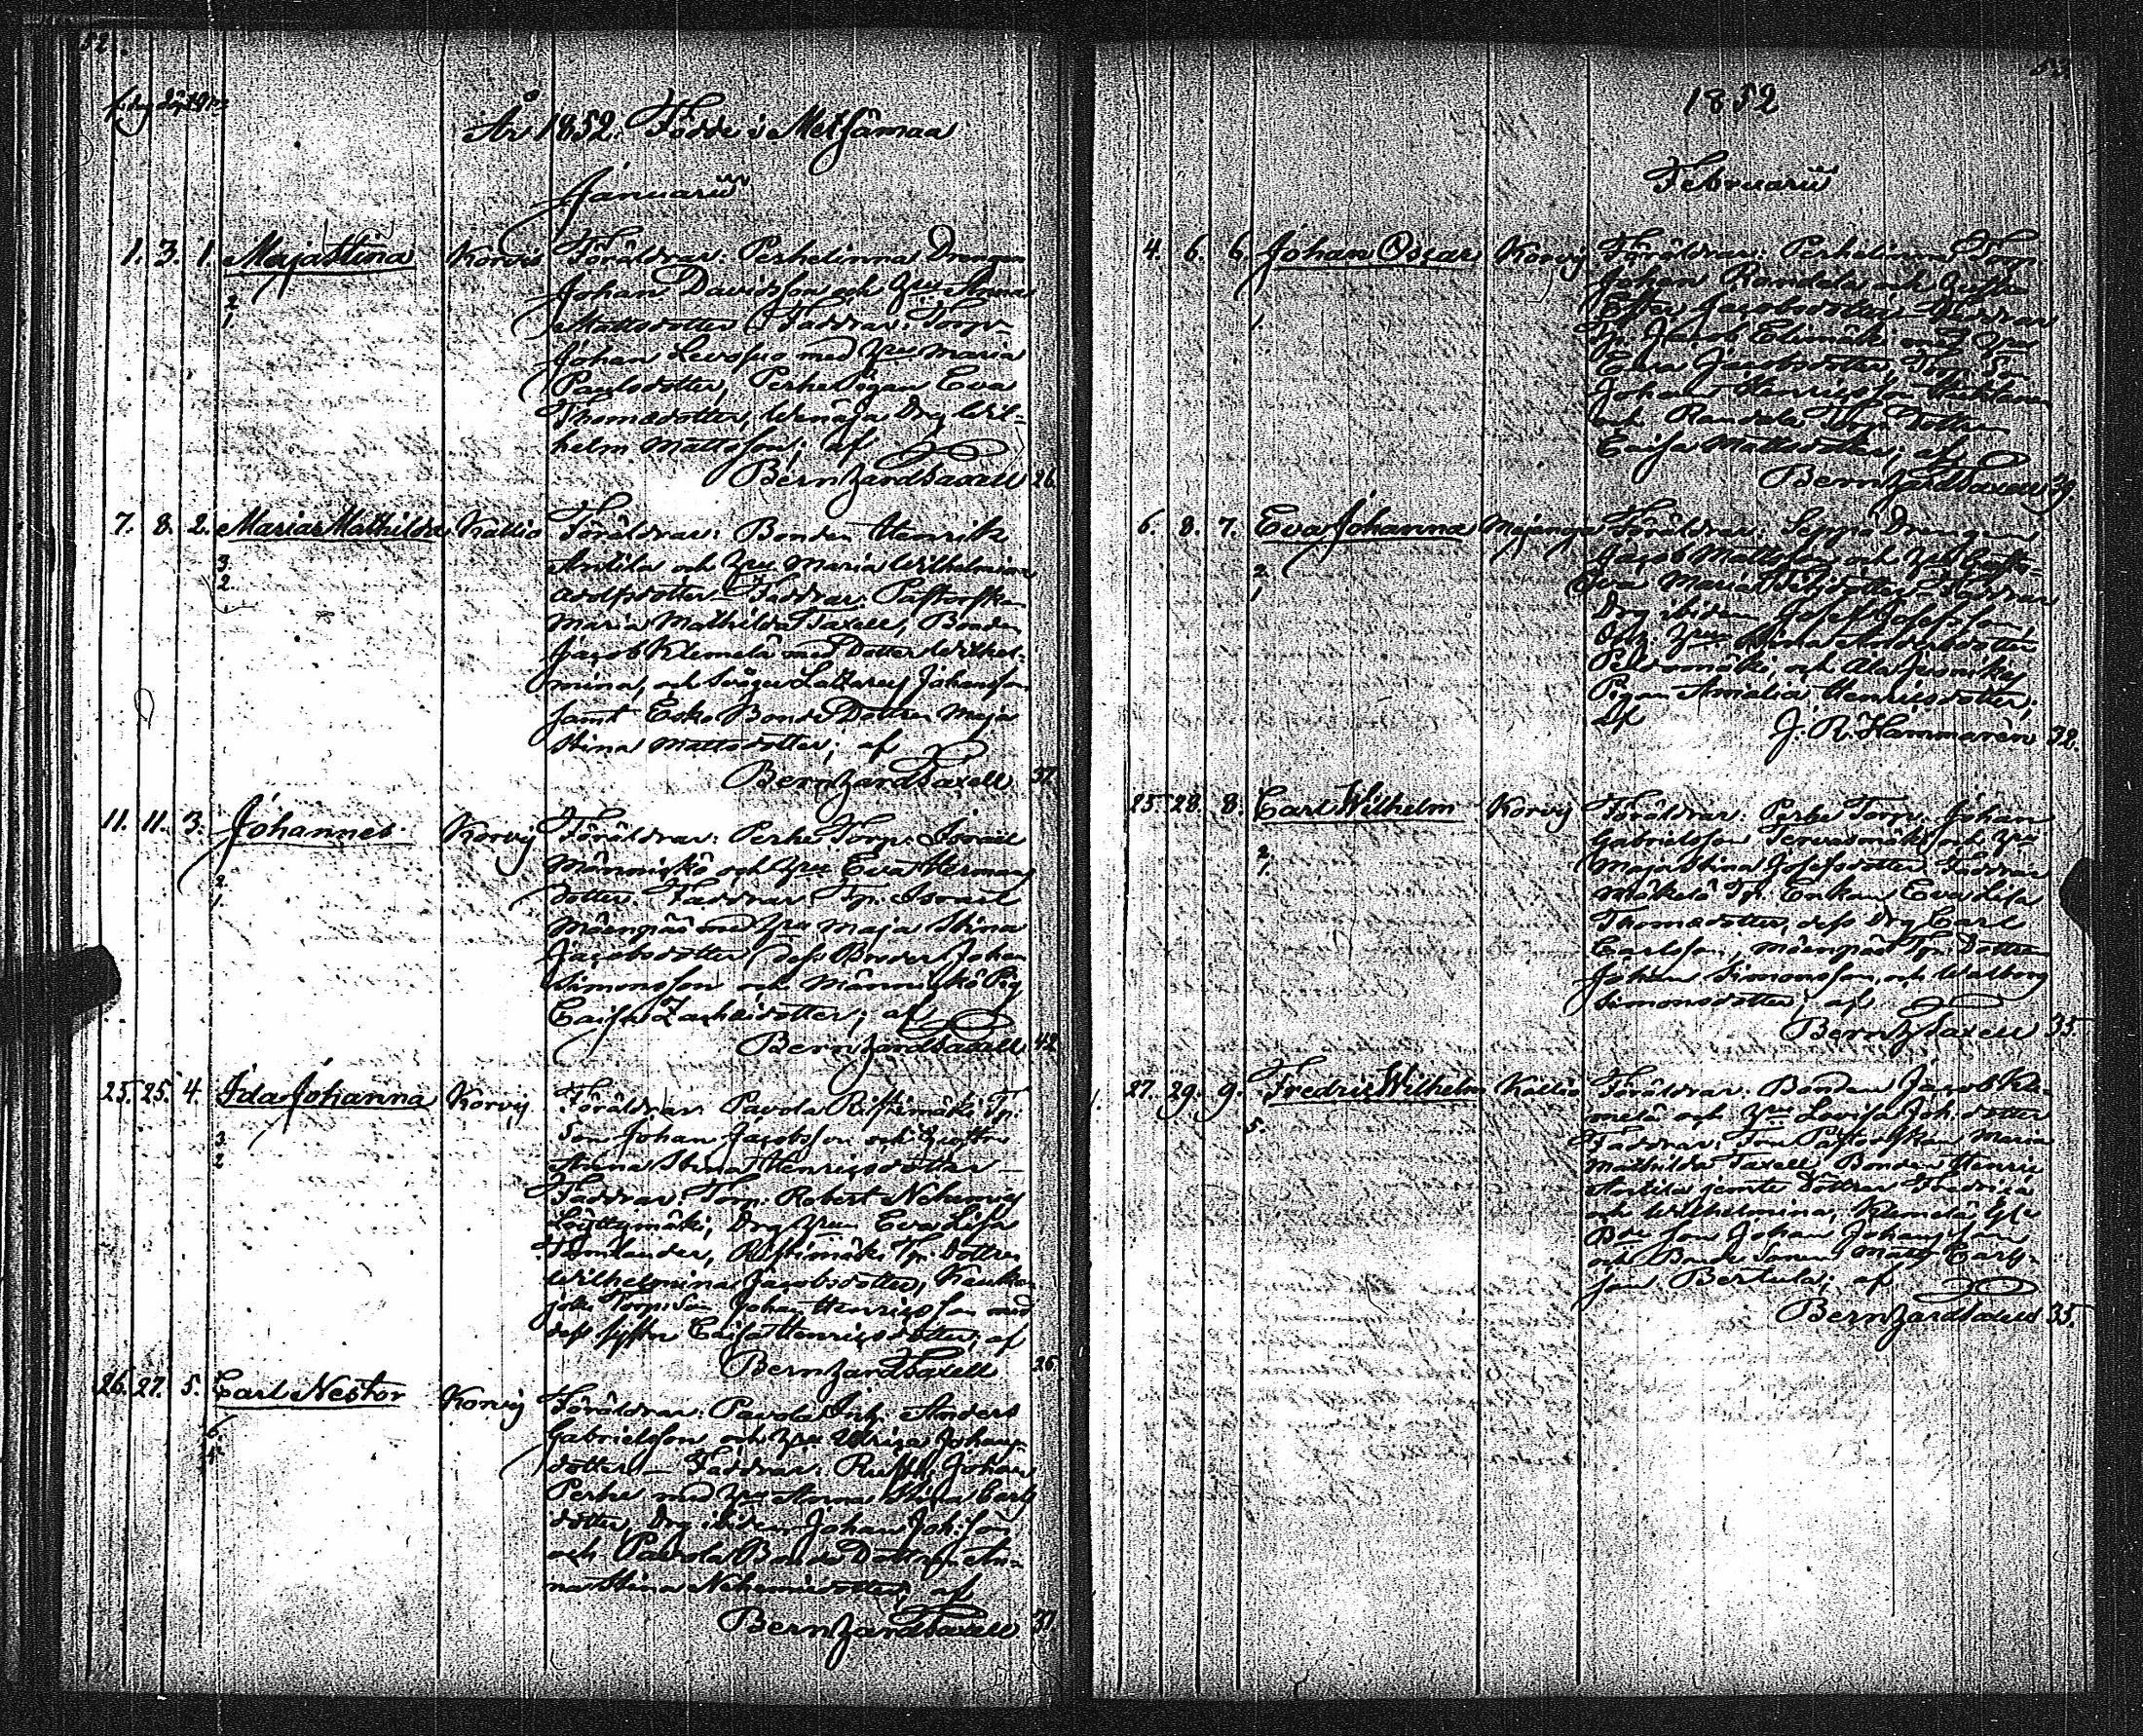 52.
År 1852. Födde i Metsämaa
Januarii
1. 3. 1. Maja Stina Korvis Föräldrar: Perhelinna Drengen
2. Johan Davidsson och Hru Anna
1. Mattsdotter Faddrar: Torp.
Johan Levosuo med Hru Maria
Paulsdotter, Perhe Pigan Eva
Thomædotter, Drg Wil-
helm Mattsson; af
Bernhard Taxell 26.
7. 8. 2. Maria Mathilda Kallio Föräldrar: Bonden Henrik
3. Antila och Hru Maria Wilhelmina
2. Adolfsdotter Faddrar: Pastorskan
Maria Mathilda Taxell, Bonden
Jacob Klemelä med Dotter Wilhel-
mina, och Johansson
samt Esko Bonde Dottren Maja
Stina Mattsdotter; af
Bernhard Taxell 37.
11. 11. 3. Johannes Korvij Föräldrar: Perhe Torp. Israel
Människö och Hru Eva Hermans
2. dotter. Faddrar Tp. Israel
1. Mäenpää med Hru Maja Stina
Jacobsdotter, dess Broder Johan
Simonsson och Människö Pig
Caisa Zachrisdotter; af
Bernhard Taxell 42.
25. 25. 4. Ida Johanna Korvij Föräldrar Pavola Ristimäki Tp:
3. Son Johan Jacobsson och Hustru
2. Anna Stina Henricsdotter –
Faddrar: Torp: Robert
Löyttymäki, Drg Hru Eva Lisa
Ristimäki Tp. Dottren
Wilhelmina Jacobsdotter,
Torp: Son Johan Henricsson med
dess syster Caisa Henricsdotter; af
Bernhard Taxell 26.
26. 27. 5. Carl Nestor Korvij Föräldrar: Pavola Inh. Anders
6. Gabrielsson och Hru Ulrica Johans-
dotter – Faddrar: Rusth: Johan
Perhe med Hru Anna Stina Carls
dotter, Drg ibidem Johan Joh:son
och Pavola Bonde Dottren An-
na Stina Nehemiedotter, af
Bernhard Taxell 37.
53
1852
Februarii
4. 6. 6. Johan Oscar Korvij Föräldrar: Perhelinna Torp.
Johan Randela och Hustru
Ester Jacobsdotter – Faddrar
1. Tp. Jacob Elimäki med Hru
Eva Jacobsdotter, Torp. Son
Johan Henricsson
och Randela Torp. Dottren
Caisa Mattsdotter; af
Bernhard Taxell 39.
6. 8. 7. Eva Johanna Föräldrar: Seppä Drengen
2. Jacob Mattsson och Hru
1. Eva Maria – Faddrar
Drg ibidem Josef Josefsson,
Hru Stina Andersdotter
och
Pigan Amalia Henricsdotter;
af J. R. Hammarén 32.
25. 28. 8. Carl Wilhelm Korvij Föräldrar: Perhe Torp. Johan
2. Gabrielsson Tervasmäki och Hru
1. Maja Stina Josefsdotter Faddrar
Mäkelä Tp. Enkan Eva Lisa
Thomædotter, dess Drg Carl
Carlsson, Mäenpää Tp. Dotter
Johan Simonsson och Walborg
Simonsdotter; af
Bernh Taxell 35
27. 29. 9. Fredric Wilhelm Kallio Föräldrar: Bonden Jacob Kle-
5. melä och Hru Lovisa Joh. dotter
Faddrar: Fru Pastorskan Maria
Mathilda Taxell, Bonden Henric
Antila jemte Döttrar Fredrica
och Wilhelmina, Klemelä
Bde son Johan Johansson
och Bonde Sonen Matts Carls-
son Bertula; af
Bernhard Taxell 35.